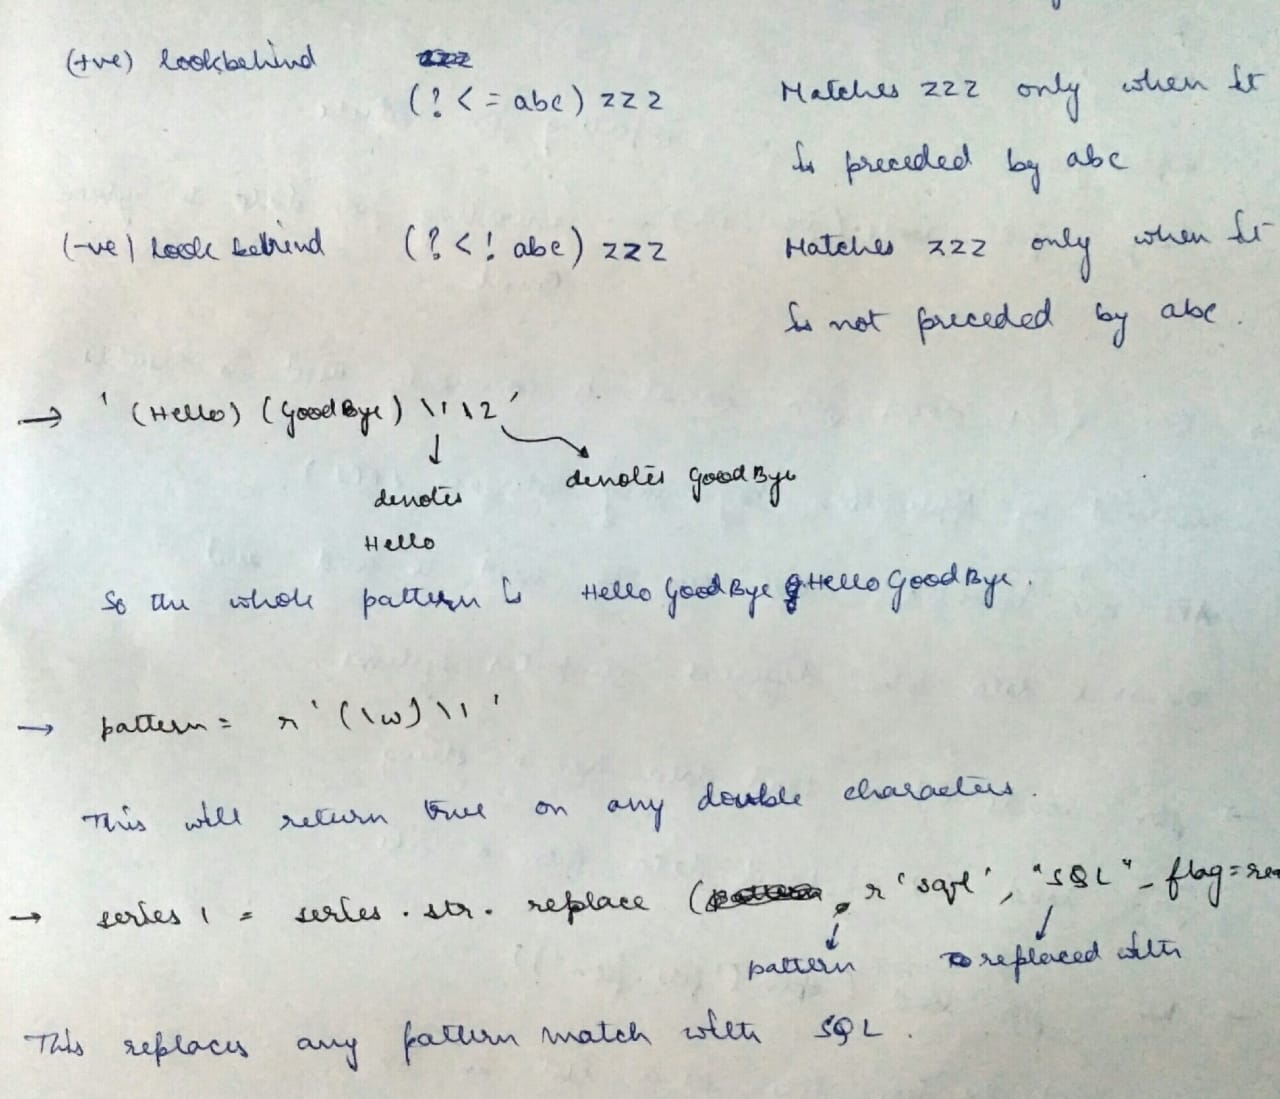 (+ve) lookbehind (?<=abc) zzz Matches zzz only when it
is preceded by abc
(-ve) look behind (?<! abc) zzz Matches zzz only when it
is not preceded by abc.
→ '(Hello) (GoodBye) \1\2'
denotes denotes GoodBye
Hello
So the whole pattern is Hello GoodBye Hello GoodBye.
→ pattern = r'(\w)\1'
This will return true on any double characters.
→ series1 = series.str.replace (r'sql', "SQL", flag=re
pattern replaced with
This replaces any pattern match with SQL.